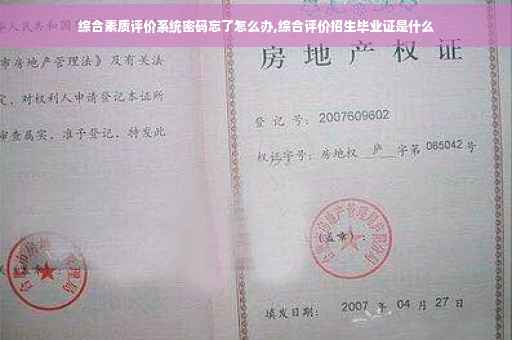 综合素质评价系统密码忘了怎么办,综合评价招生毕业证是什么
市房地产管理法》及有关法
定，对权利人申请登记本证所
审查属实，准予登记，特发此
房地产权证
登记号：2007609602
权证字号：房地权 庐 字第 085042 号
(盖章)：
填发日期：2007 年 04 月 27 日